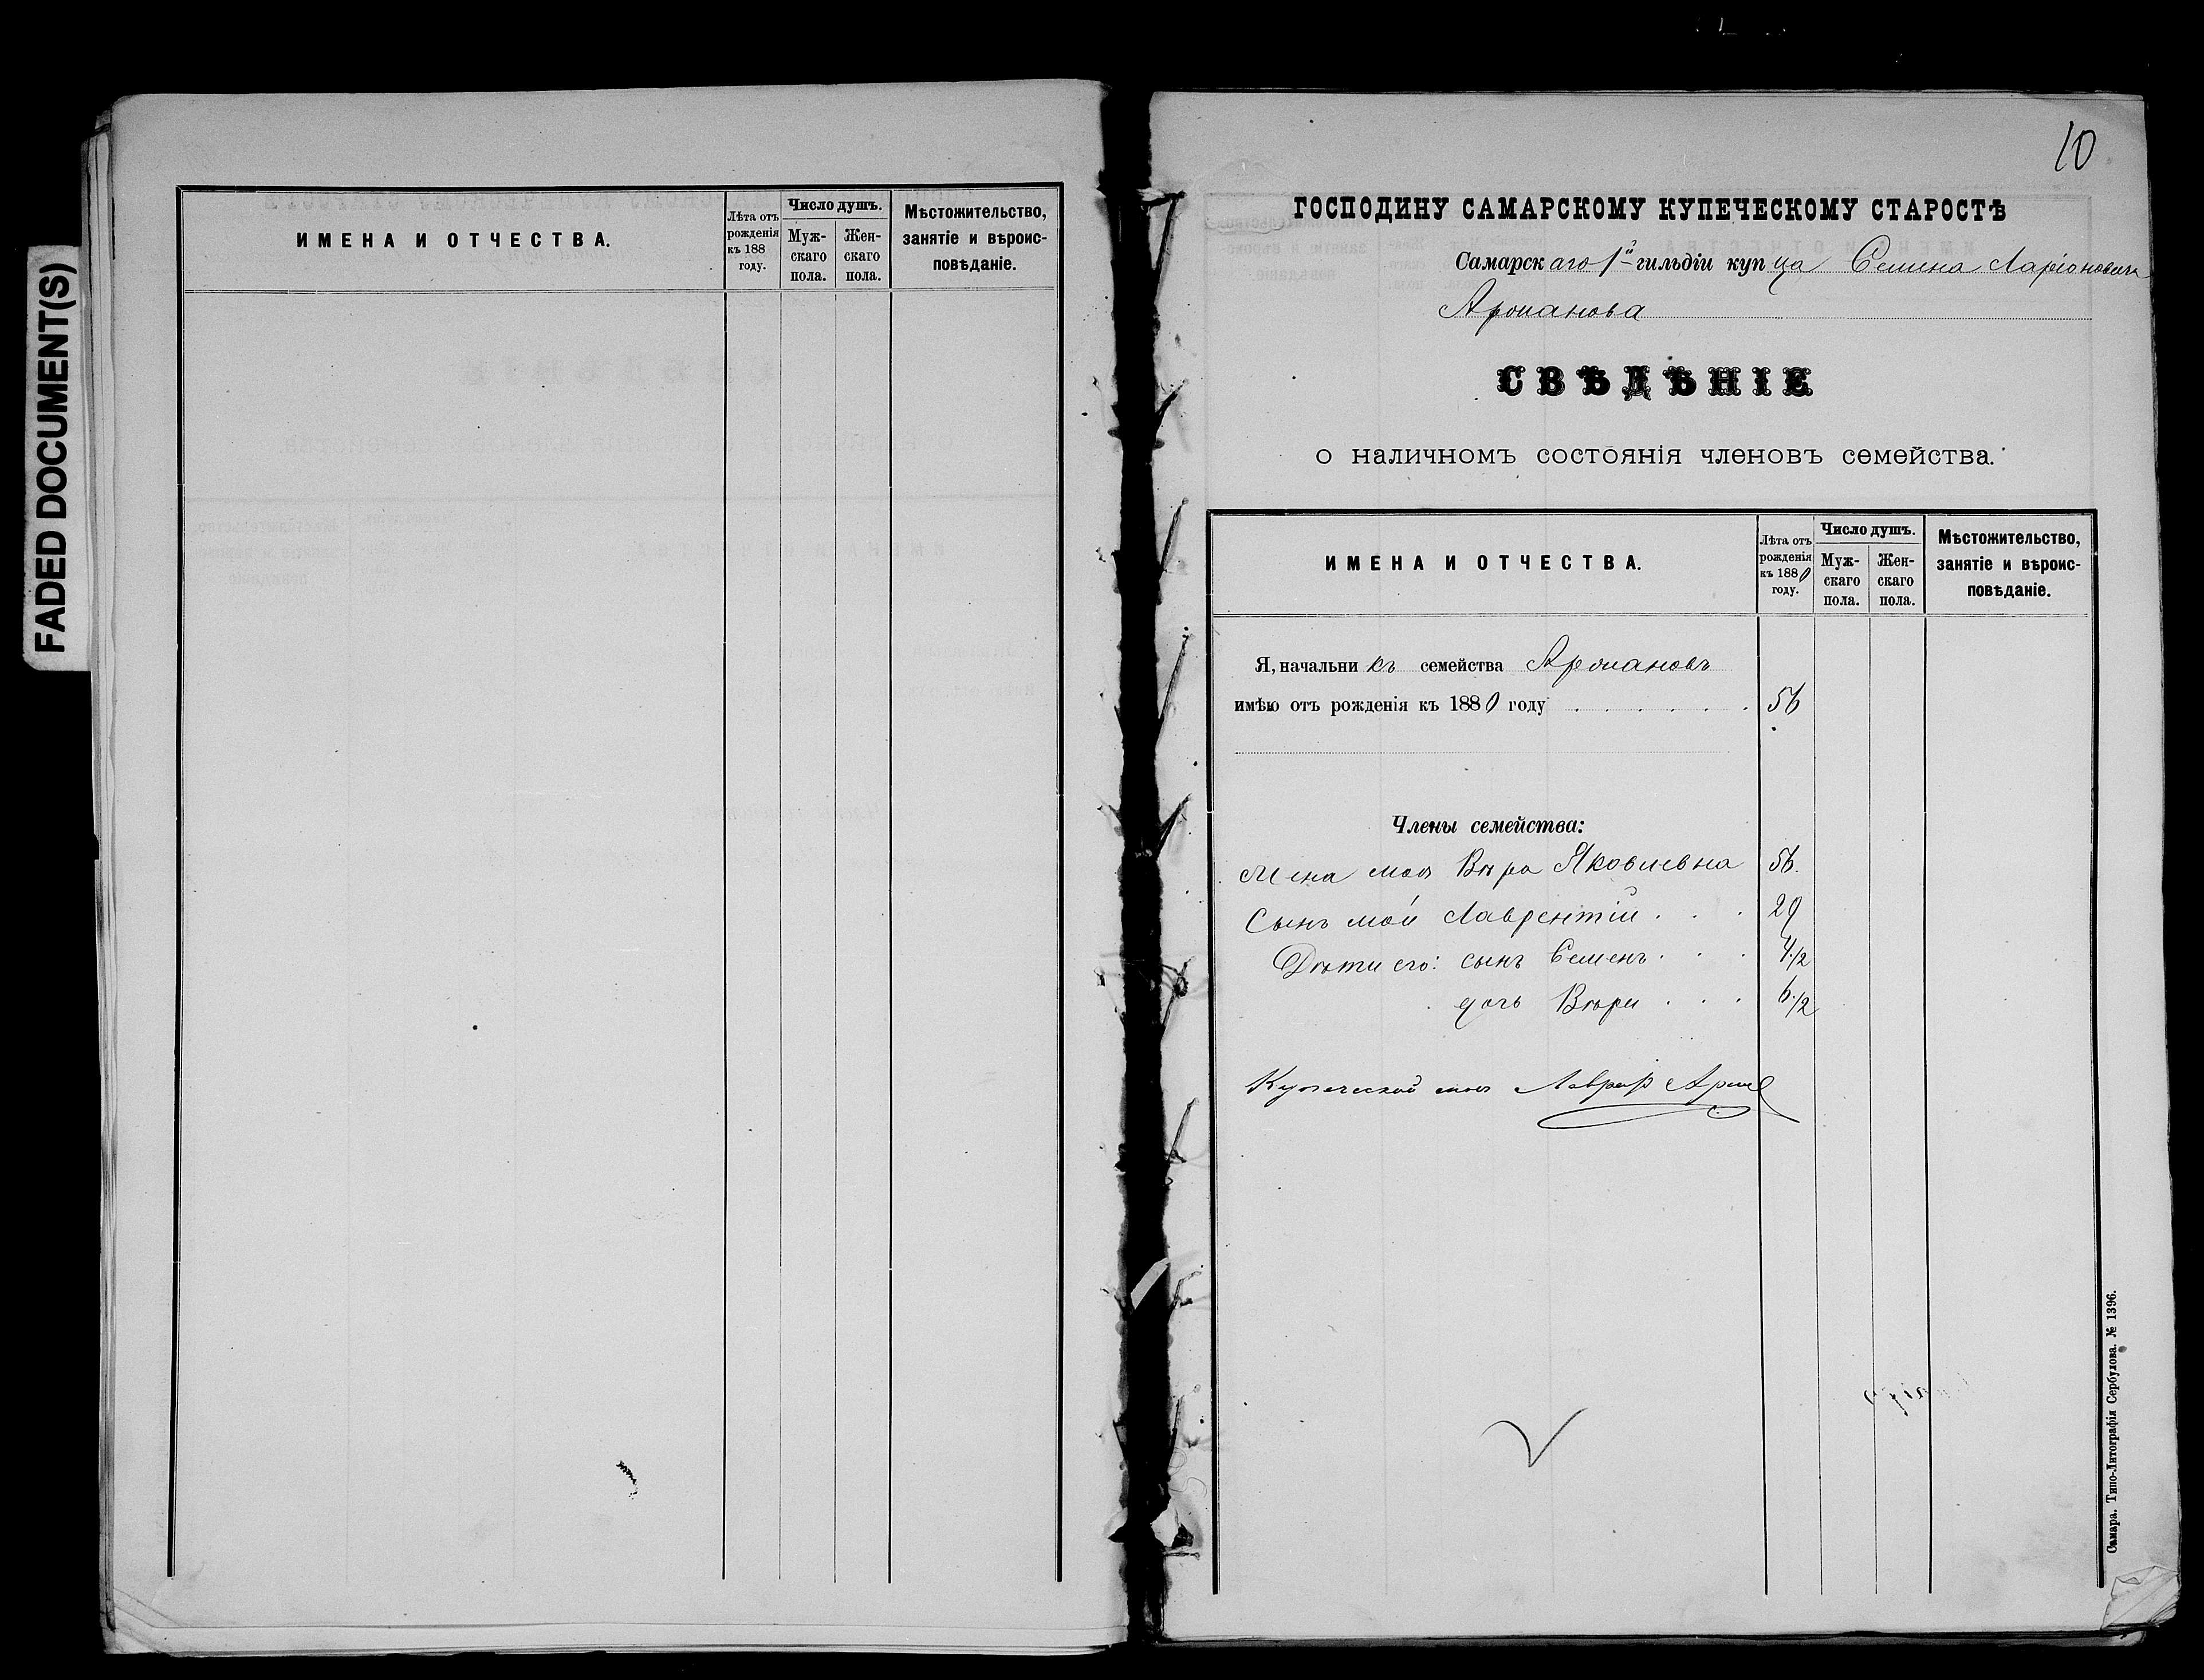 FADED DOCUMENT(S)
ИМЕНА И ОТЧЕСТВА.
Лѣта отъ рожденія къ 188 году.
Число душъ.
Мужскаго пола.
Женскаго пола.
Мѣстожительство, занятіе и вѣроисповѣданіе.
10
ГОСПОДИНУ САМАРСКОМУ КУПЕЧЕСКОМУ СТАРОСТѢ
Самарскаго 1й гильдіи купца Семена Ларіоновича
Аржанова
СВѢДѢНІЕ
о наличномъ состоянія членовъ семейства.
ИМЕНА И ОТЧЕСТВА.
Лѣта отъ рожденія къ 1880 году.
Число душъ.
Мужскаго пола.
Женскаго пола.
Мѣстожительство, занятіе и вѣроисповѣданіе.
Я, начальникъ семейства Аржановъ
имѣю отъ рожденія къ 1880 году . . . . . . 56
Члены семейства:
Жена моя Вѣра Яковлевна 56.
Сынъ мой Лаврентій . . . 29
Дѣти его: сынъ Семенъ . . . 4 1/2
дочь Вѣра . . . 6 1/2
Купеческой сынъ
Самара. Типо-Литографія Сербулова. № 1396.